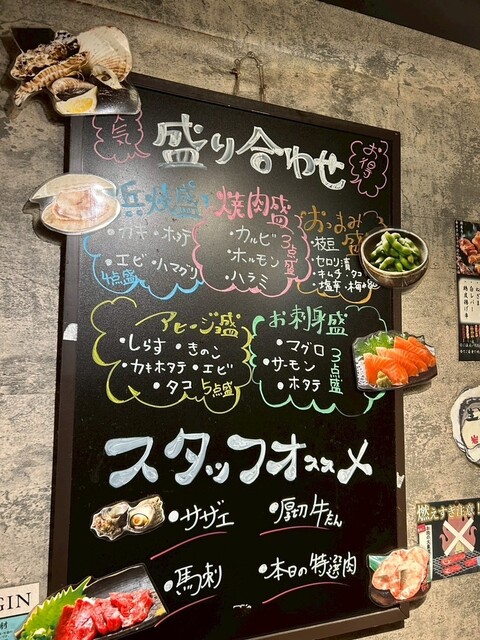 人気
盛り合わせ
お得
浜焼盛
・カキ・ホタテ
・エビ・ハマグリ
4点盛
焼肉盛
・カルビ
・ホルモン
・ハラミ
3点盛
おつまみ盛
・枝豆
・セロリ漬
・キムチ・タコ
アヒージョ盛
・しらす・きのこ
・カキホタテ・エビ
・タコ 5点盛
お刺身盛
・マグロ
・サーモン
・ホタテ
3点盛
スタッフオススメ
・サザエ
・厚切牛たん
・馬刺
・本日の特選肉
燃えすぎ注意!
GIN